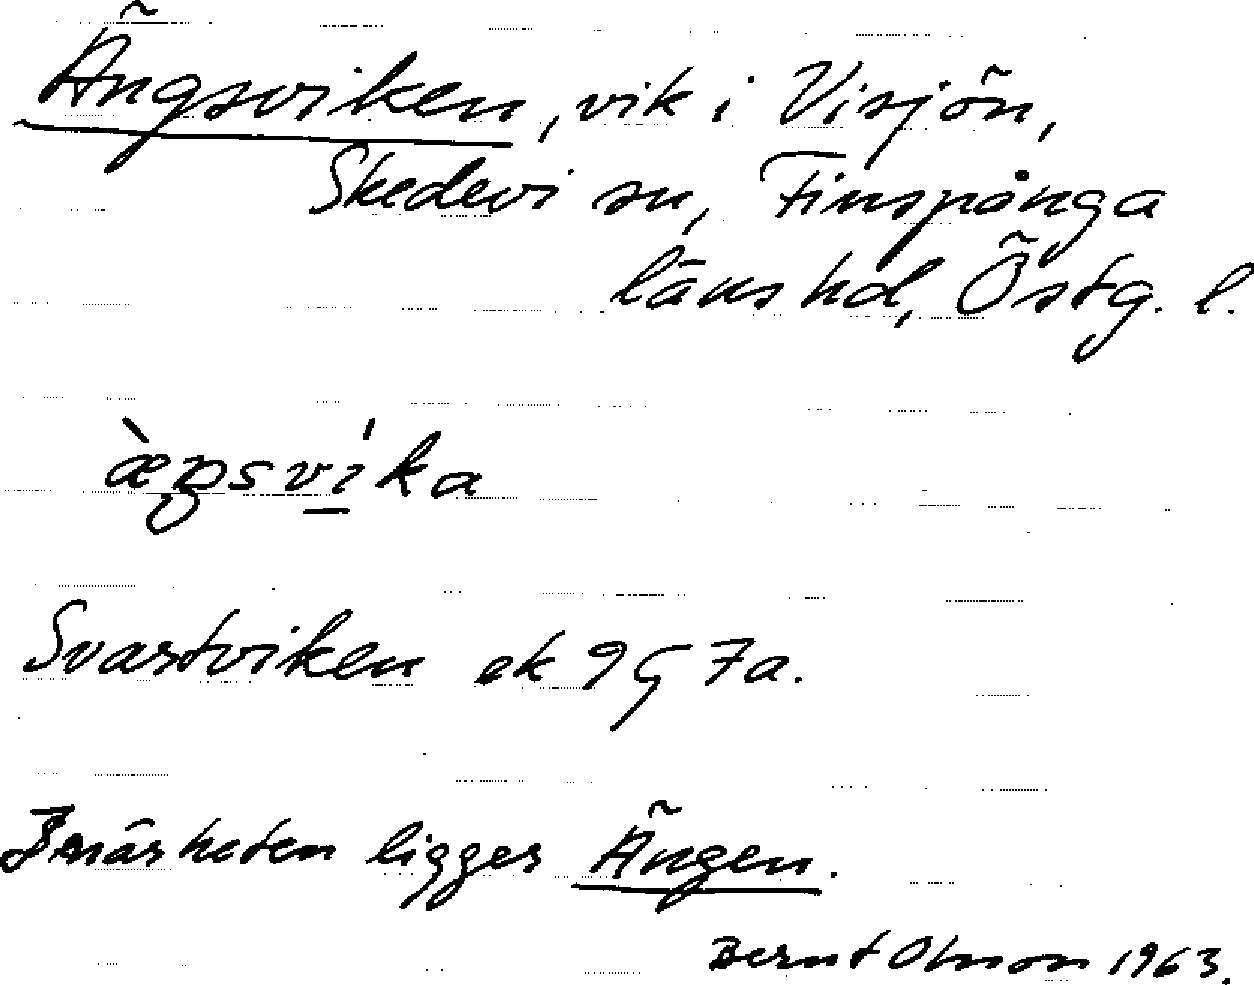 Ängsviken, vik i Visjön,
Skedevi sn, Finspånga
läns hd, Östg. l.
æ̀ŋsví̲ka
Svartviken ek 9G 7a.
I närheten ligger Ängen.
Bernt Olsson 1963.